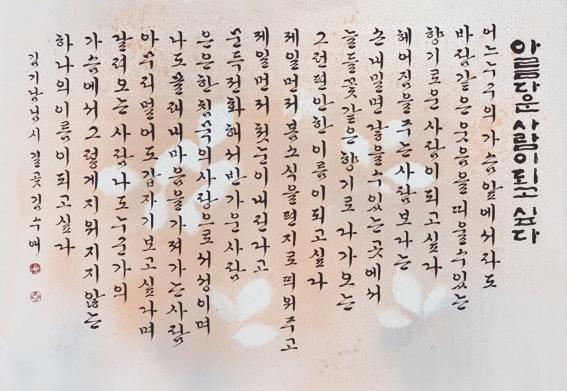 아름다운 사람이 되고 싶다
어느 누구의 가슴 앞에서라도
바람 같은 웃음을 띄울 수 있는
향기로운 사람이 되고 싶다
헤어짐을 주는 사람보다는
손 내밀면 닿을 수 있는 곳에서
늘 들꽃 같은 향기로 다가오는
그런 편안한 이름이 되고 싶다
제일 먼저 봄소식을 편지로 띄워주고
제일 먼저 첫눈이 내린다고
문득 전화해서 반가운 사람
은은한 침묵의 사랑으로 서성이며
나도 몰래 내 마음을 가져가는 사람
아무리 멀어도 갑자기 보고 싶다며
달려오는 사람 나도 누군가의
가슴에서 그렇게 지워지지 않는
하나의 이름이 되고 싶다
김기남님 시 결곷 김수애